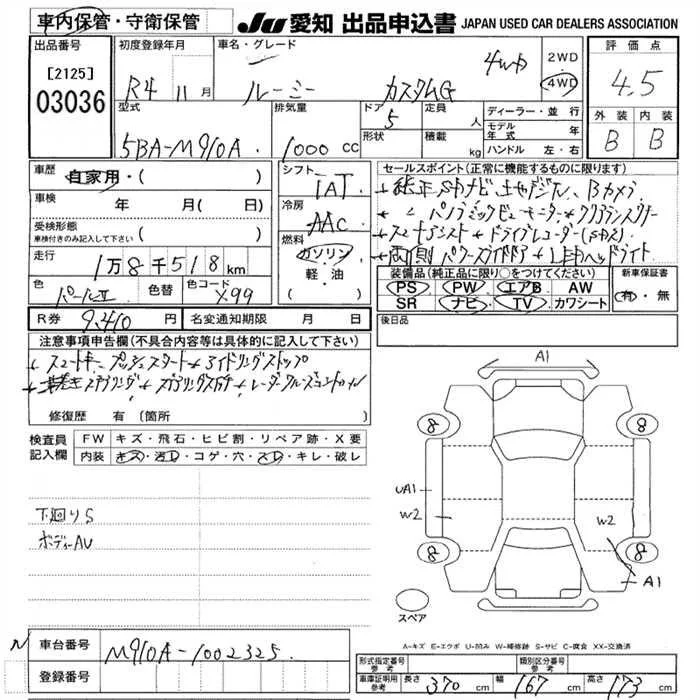 車内保管・守衛保管
JU 愛知 出品申込書 JAPAN USED CAR DEALERS ASSOCIATION
出品番号
[2125]
03036
初度登録年月
R4 11月
車名・グレード
ルーミー カスタムG 4WD
2WD
4WD
評価点
4.5
外装 内装
B B
型式
5BA-M910A
排気量
1000 cc
ドア
5
定員
人
形状
積載
kg
ディーラー・並行
モデル年式 年
ハンドル 左・右
車歴
自家用・( )
車検 年 月( 日)
受検形態
車検付きのみ記入して下さい ( )
走行
1万8千518km
色
パールII
色替
色コード
X99
シフト
IAT
冷房
AAC
燃料
ガソリン
軽・油
( )
セールスポイント(正常に機能するものに限ります)
+純正SDナビ +地デジTV、Bカメラ
+パノラミックビューモニター+クリアランスソナー
+スマートアシスト+ドライブレコーダー
+両側パワースライドドア+LEDヘッドライト
装備品(純正品に限り○をつけてください)
PS PW エアB AW
SR ナビ TV カワシート
新車保証書
有・無
R券 9,410 円
名変通知期限 月 日
後日品
注意事項申告欄(不具合内容等は具体的に記入して下さい)
+スマートキー+プッシュスタート+アイドリングストップ
+革巻きステアリング+ステアリングスイッチ+レーダークルーズコントロール
修復歴 有 〔箇所
検査員記入欄
FW キズ・飛石・ヒビ割・リペア跡・X要
内装 キズ・汚レ・コゲ・穴・スレ・キレ・破レ
下廻りS
ボディーAU
A1
8 8
UA1
W2 W2
8 8
A1
スペア
A-キズ E-エクボ U-凹み W-補修跡 S-サビ C-腐食 XX-交換済
車台番号
M910A-1002325
登録番号
形式指定番号
参考
類別区分番号
参考
車庫証明用
参考
長さ 370 cm
幅 167 cm
高さ 173 cm